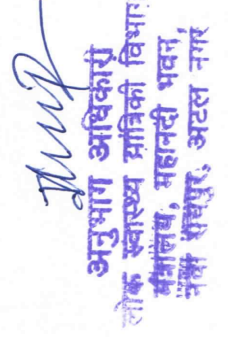 अनुभाग अधिकारी
लोक स्वास्थ्य यांत्रिकी विभाग
मंत्रालय, महानदी भवन
नवा रायपुर, अटल नगर